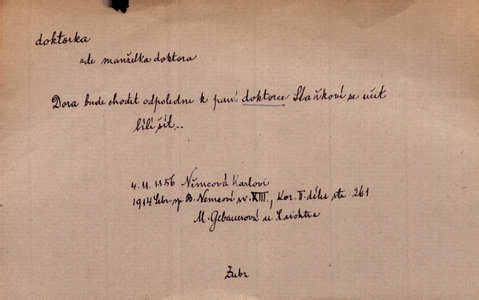 doktorka
zde manželka doktora
Dora bude chodit odpoledne k paní doktorce Slavíkové se učit
bílí šít..
4.11.1856 Němcová Karlovi
1914 Sebr. sp. B. Němcové sv. XIII, Kor. II. díl str. 261
M. Gebauerová u Laichtra
Zubr